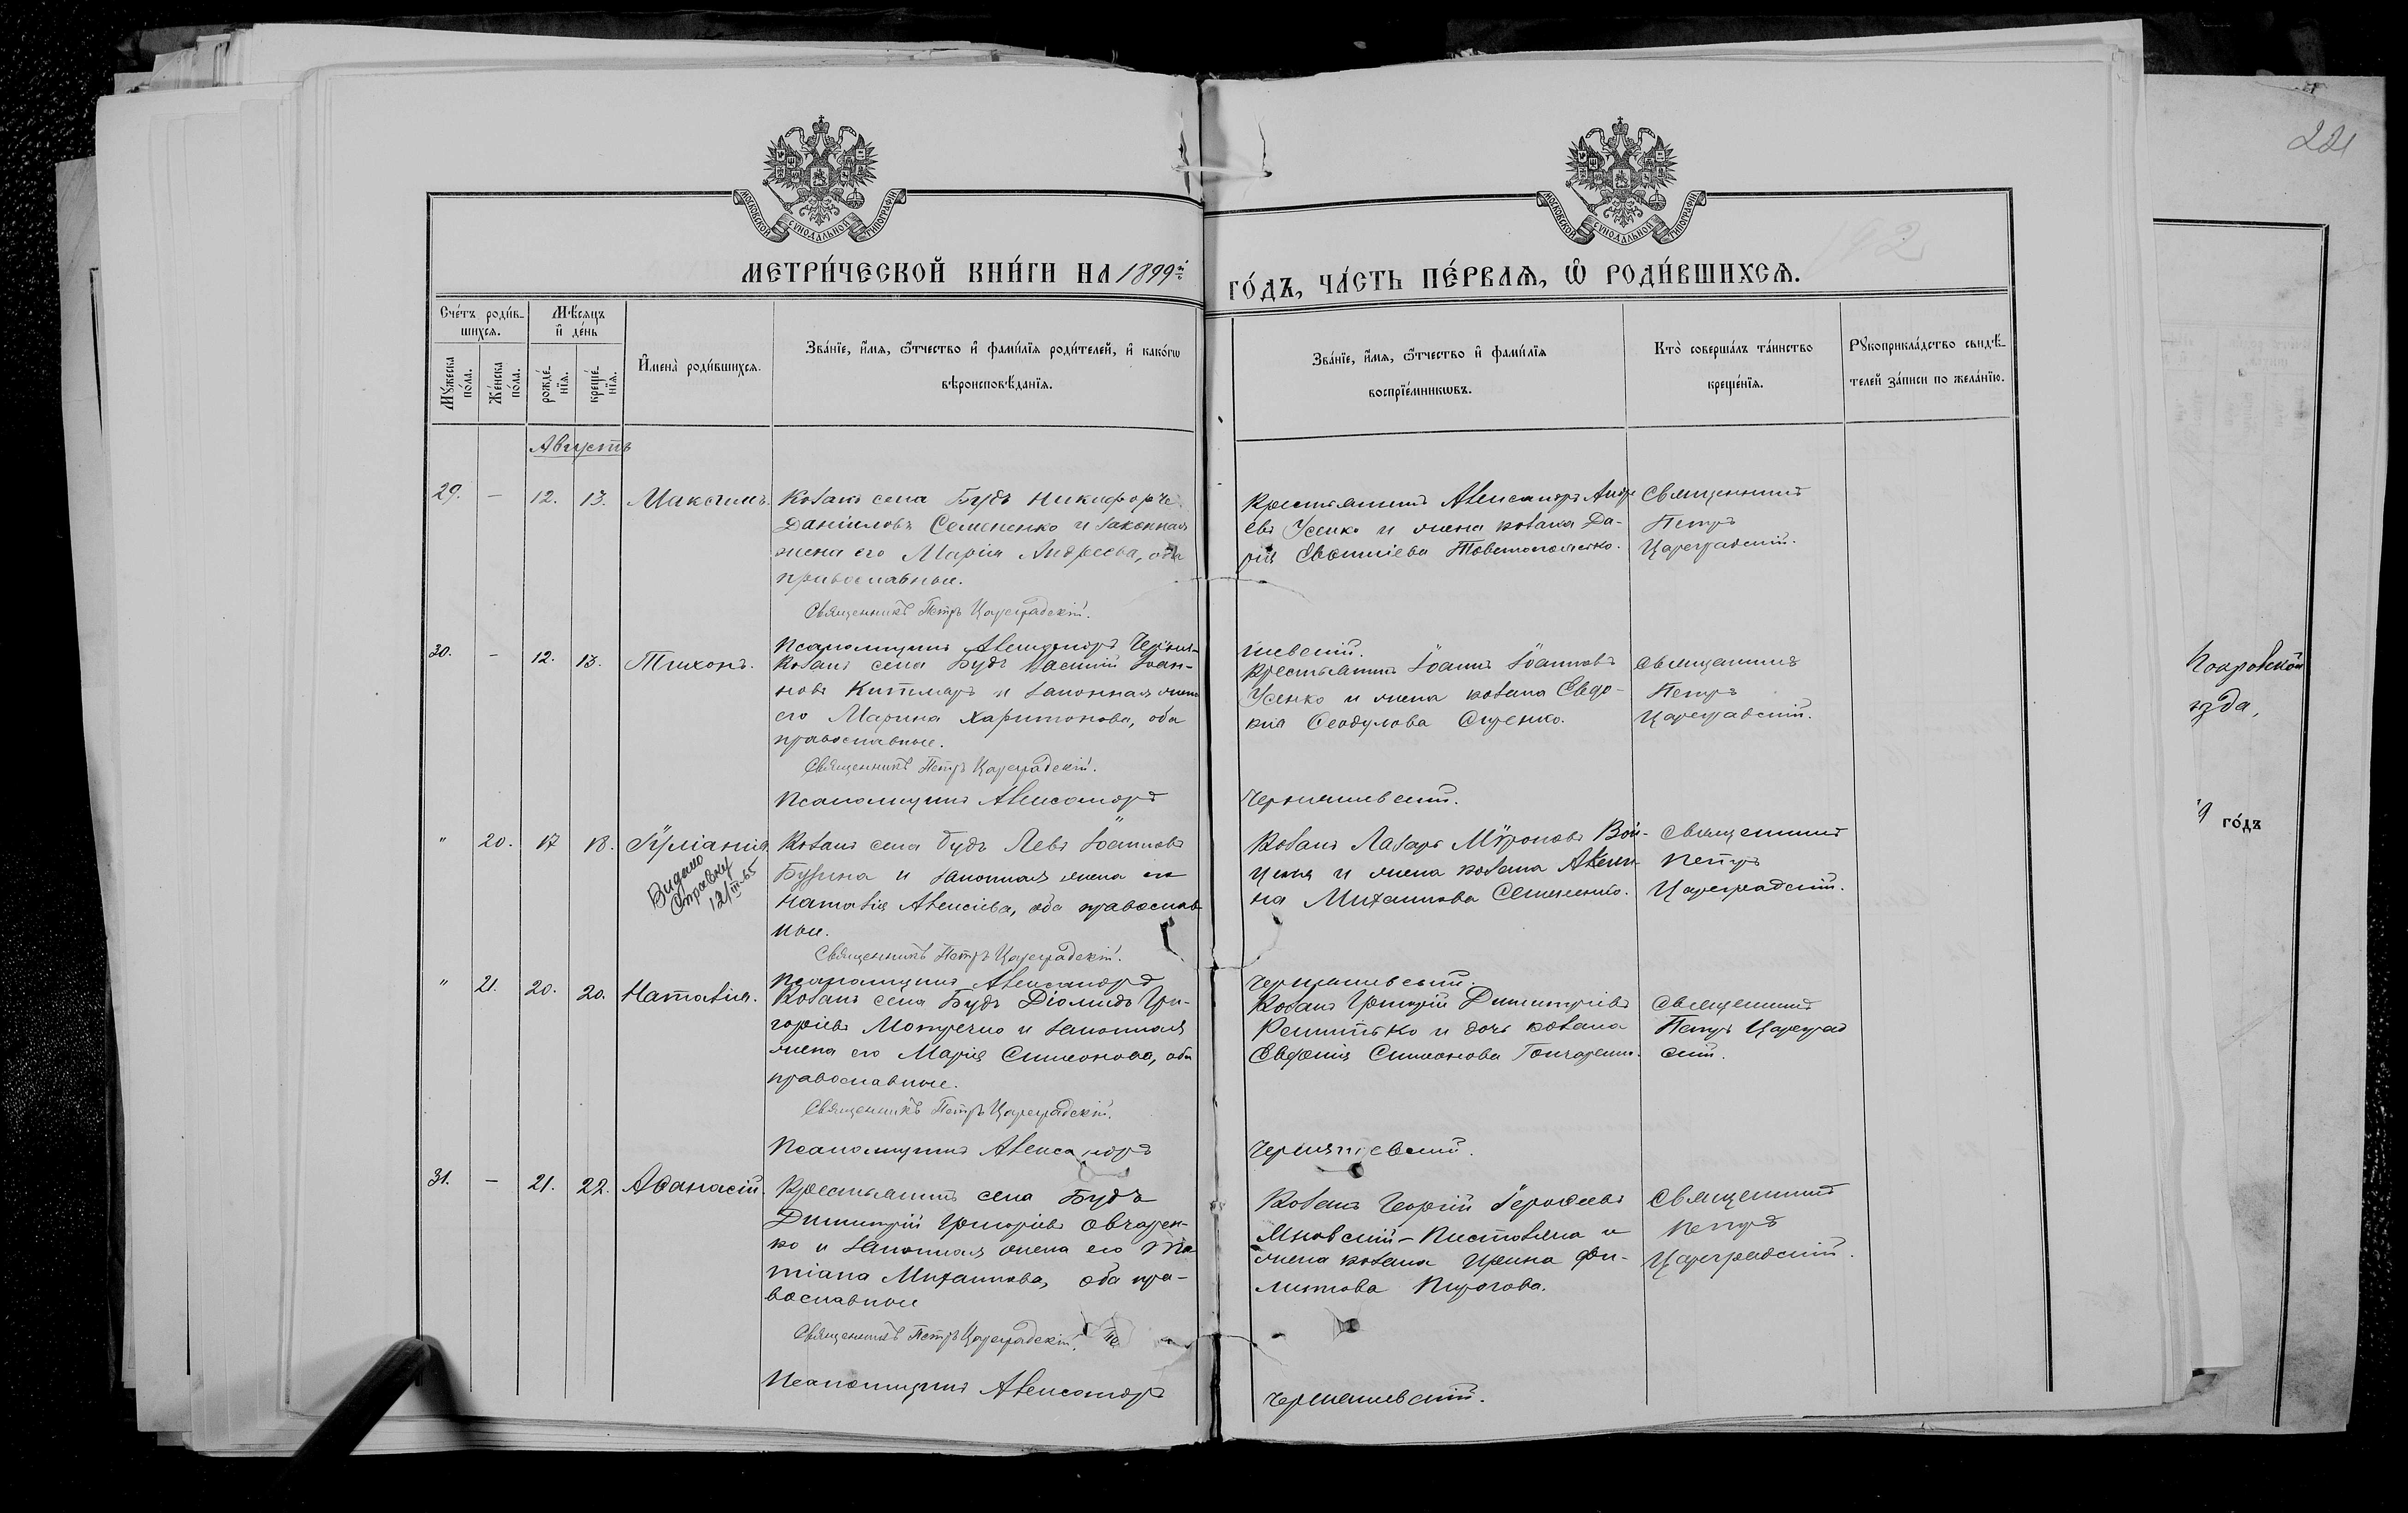 221
МОСКОВСКОЙ СѴНОДАЛЬНОЙ ТИПОГРАФІИ
МОСКОВСКОЙ СѴНОДАЛЬНОЙ ТИПОГРАФІИ
МЕТРИ́ЧЕСКОЙ КНИ́ГИ НА 1899й
ГО́ДЪ, ЧА́СТЬ ПЕ́РВАѦ, Ѡ҆ РОДИ́ВШИХСѦ.
Сче́тъ роди́в-
шихсѧ.
Мꙋжеска
по́ла.
Же́нска
по́ла.
Мѣ́сѧцъ
и҆ де́нь
рожде́-
нїѧ.
креще́-
нїѧ.
И҆мена̀ роди́вшихсѧ.
Зва́нїе, и҆́мѧ, ѻ҆́тчество и҆ фами́лїѧ роди́телей, и҆ како́гѡ
вѣроисповѣ́данїѧ.
Зва́нїе, и҆́мѧ, ѻ҆́тчество и҆ фами́лїѧ
воспрїе́мникѡвъ.
Кто̀ соверша́лъ та́инство
креще́нїѧ.
Рꙋкоприкла́дство свидѣ́-
телей за́писи по жела́нїю.
Августъ
29. — 12. 13. Максимъ.
Козакъ села Будъ Никифоръ
Даніиловъ Семененко и законная
жена его Марія Андреева, оба
православные.
Священникъ Петръ Цареградскій.
Псаломщикъ Александръ Черня-
шевскій.
Крестьянинъ Александръ Андре
евъ Усенко и жена козака Да-
рія
Священникъ
Петръ
Цареградскій.
30. — 12. 13. Тихонъ.
Козакъ села Будъ Василій Іоан-
новъ Китмаръ и законная жена
его Марина Харитонова, оба
православные.
Священникъ Петръ Цареградскій.
Псаломщикъ Александръ
Черняшевскій.
Крестьянинъ Іоаннъ Іоанновъ
Усенко и жена козака Евдо-
кия Ѳеодулова
Священникъ
Петръ
Цареградскій.
" 20. 17 18. Іуліанія
Видано
справку
12/III-65
Козакъ села Будъ Левъ Іоанновъ
и законная жена его
Наталія Алексіева, оба православ
ные.
Священникъ Петръ Цареградскій.
Псаломщикъ Александръ
Черняшевскій.
Козакъ Лазарь Мѵроновъ Вой-
и жена козака Акили-
на Михаилова Семененко.
Священникъ
Петръ
Цареградскій.
" 21. 20. 20. Наталія.
Козакъ села Будъ Діомидъ Гри-
горіевъ и законная
жена его Марія Симеонова, оба
православные.
Священникъ Петръ Цареградскій.
Псаломщикъ Александръ
Черняшевскій.
Козакъ Григорій Димитріевъ
и дочь козака
Симеонова
Священникъ
Петръ Цареград
скій.
31. — 21. 22. Аѳанасій.
Крестьянинъ села Будъ
Димитрій Григоріевъ Овчарен-
ко и законная жена его Та-
тіана Михаилова, оба пра-
вославные
Священникъ Петръ Цареградскій.
Псаломщикъ Александръ
Черняшевскій.
Козакъ Георгій Іероѳеевъ
и
жена козака Ирина Фи-
липпова Пирогова.
Священникъ
Петръ
Цареградскій.
Покровской
ѣзда,
9 го́дъ